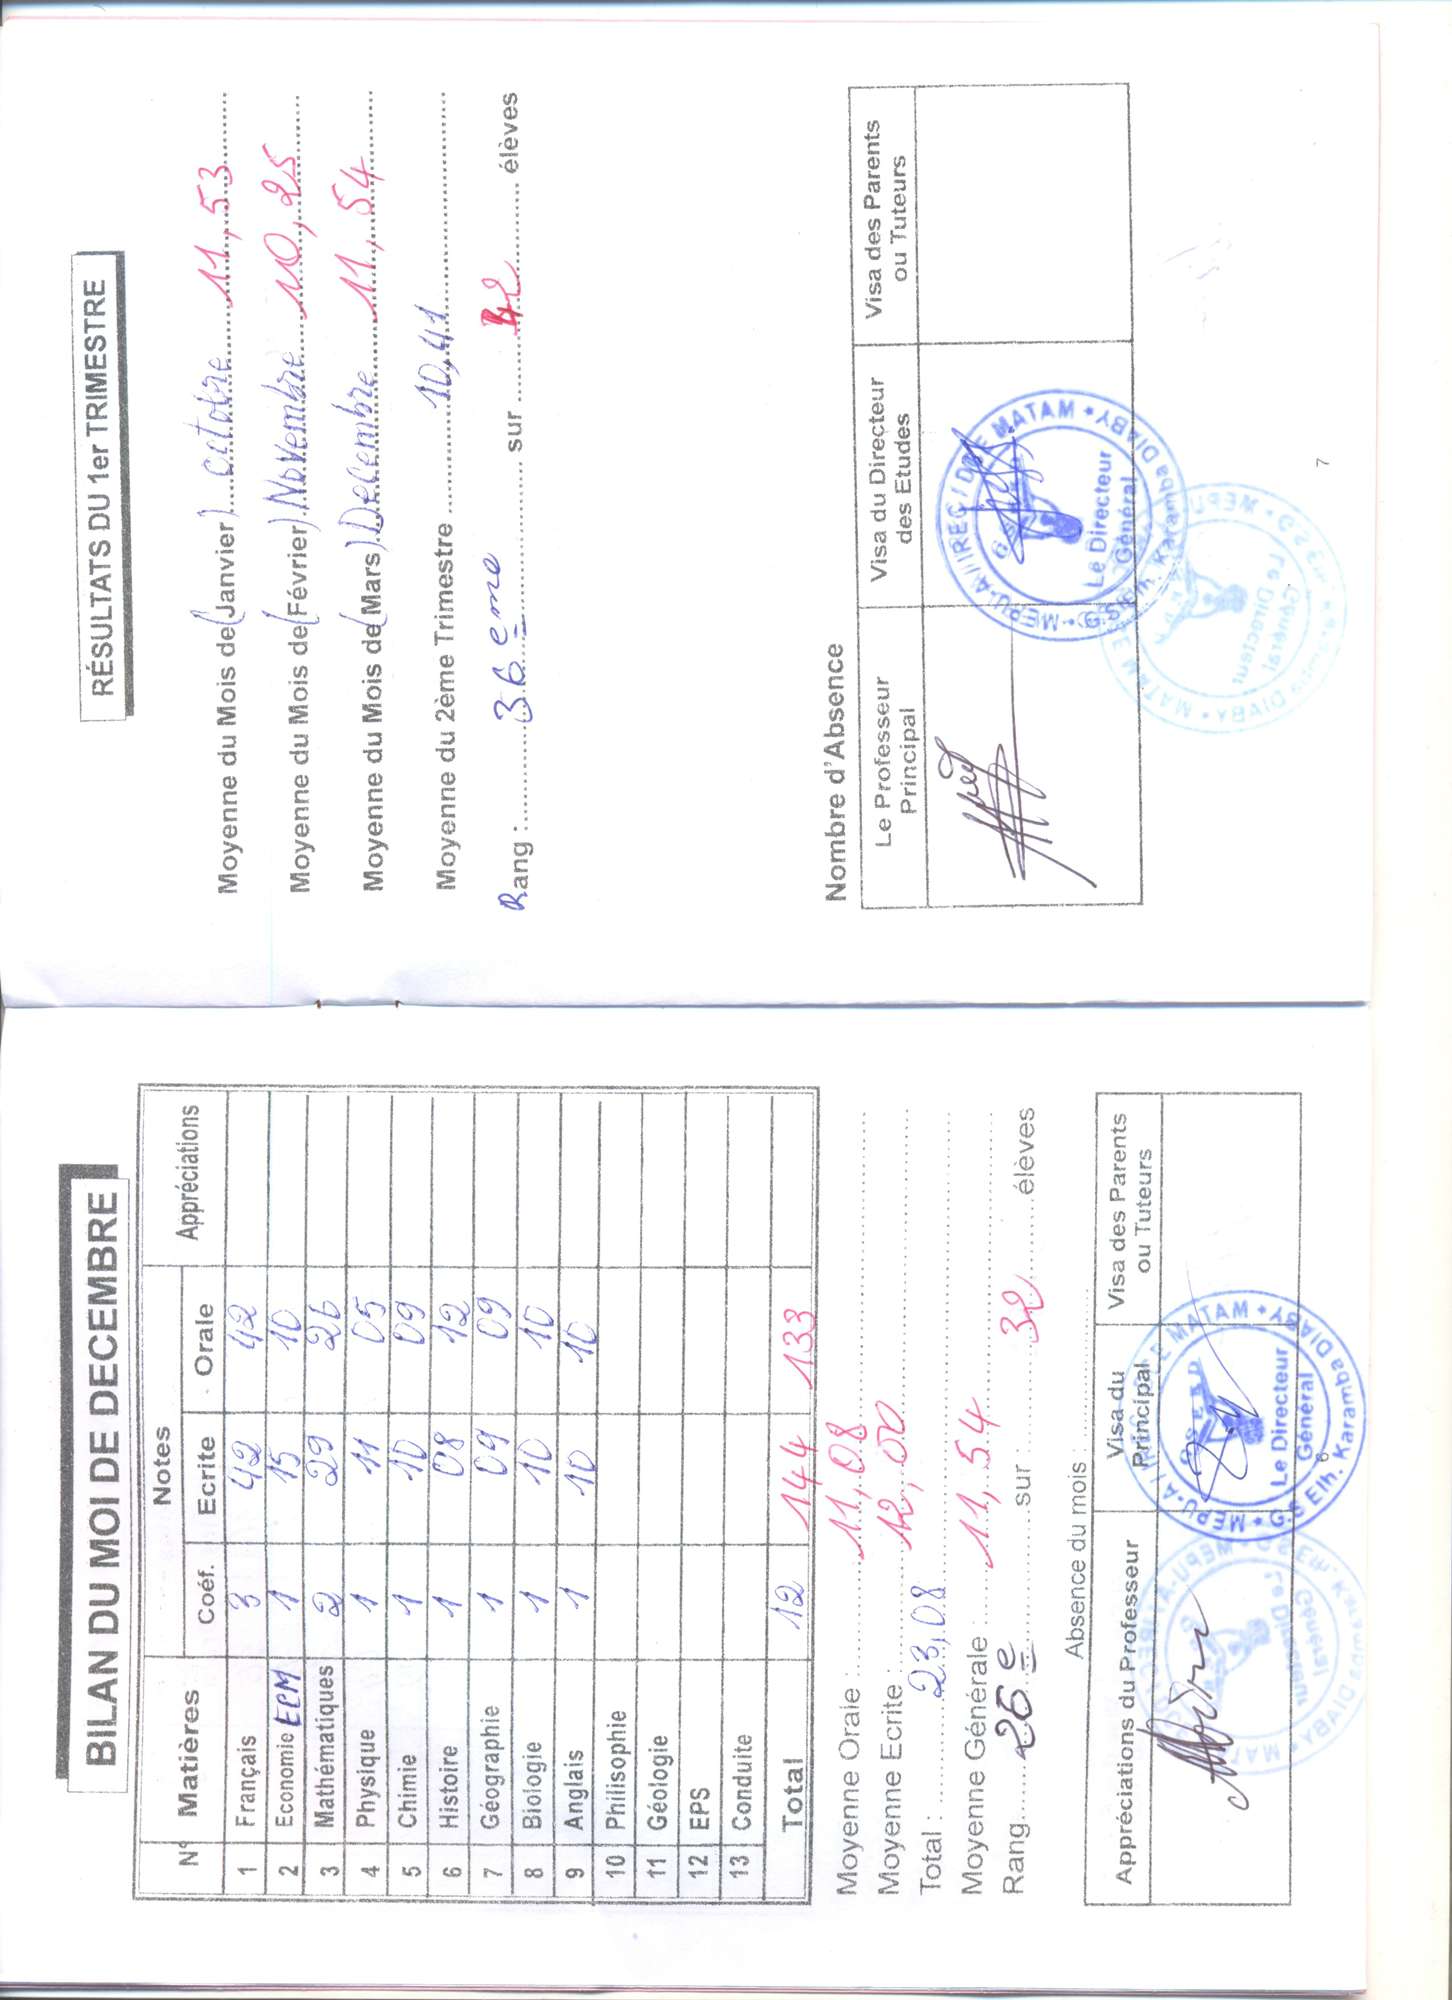 BILAN DU MOI DE DECEMBRE
N° Matières Notes Appréciations
Coéf. Ecrite Orale
1 Français 3 42 42
2 Economie ECM 1 15 10
3 Mathématiques 2 29 26
4 Physique 1 11 05
5 Chimie 1 10 09
6 Histoire 1 08 12
7 Géographie 1 09 09
8 Biologie 1 10 10
9 Anglais 1 10 10
10 Philisophie
11 Géologie
12 EPS
13 Conduite
Total 12 144 133
Moyenne Orale : 11,08
Moyenne Ecrite : 12,00
Total : 23,08
Moyenne Générale : 11,54
Rang 25e sur 32 élèves
Absence du mois :
Appréciations du Professeur Visa du Principal Visa des Parents ou Tuteurs
Le Directeur Général
G.S Elh. Karamba DIABY
6
RÉSULTATS DU 1er TRIMESTRE
Moyenne du Mois de (Janvier) octobre 11,53
Moyenne du Mois de (Février) Novembre 10,25
Moyenne du Mois de (Mars) Decembre 11,54
Moyenne du 2ème Trimestre 10,41
Rang : 36eme sur élèves
Nombre d'Absence
Le Professeur Principal Visa du Directeur des Etudes Visa des Parents ou Tuteurs
MEPU-A / IREC / DE MATAM
Le Directeur Général
G.S Elh. Karamba DIABY
7